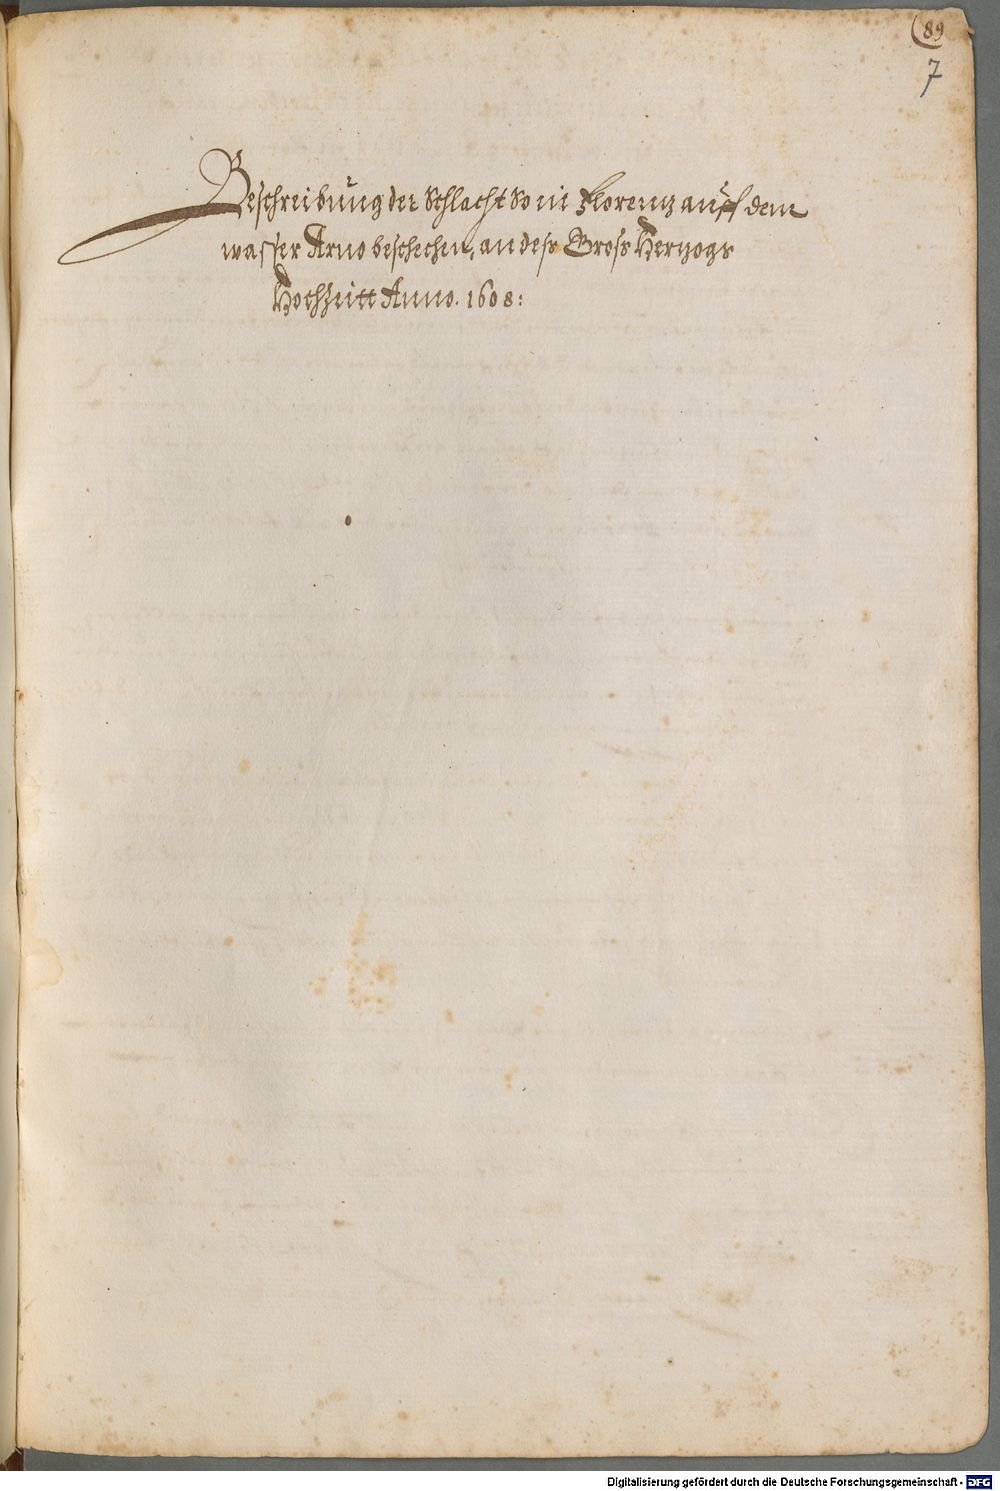 89
7
Beschreibung der Schlacht so in Florentz auff dem
wasser Arno beschechen, an dess Gross Hertzogs
Hochzeitt Anno. 1608:
Digitalisierung gefördert durch die Deutsche Forschungsgemeinschaft - DFG